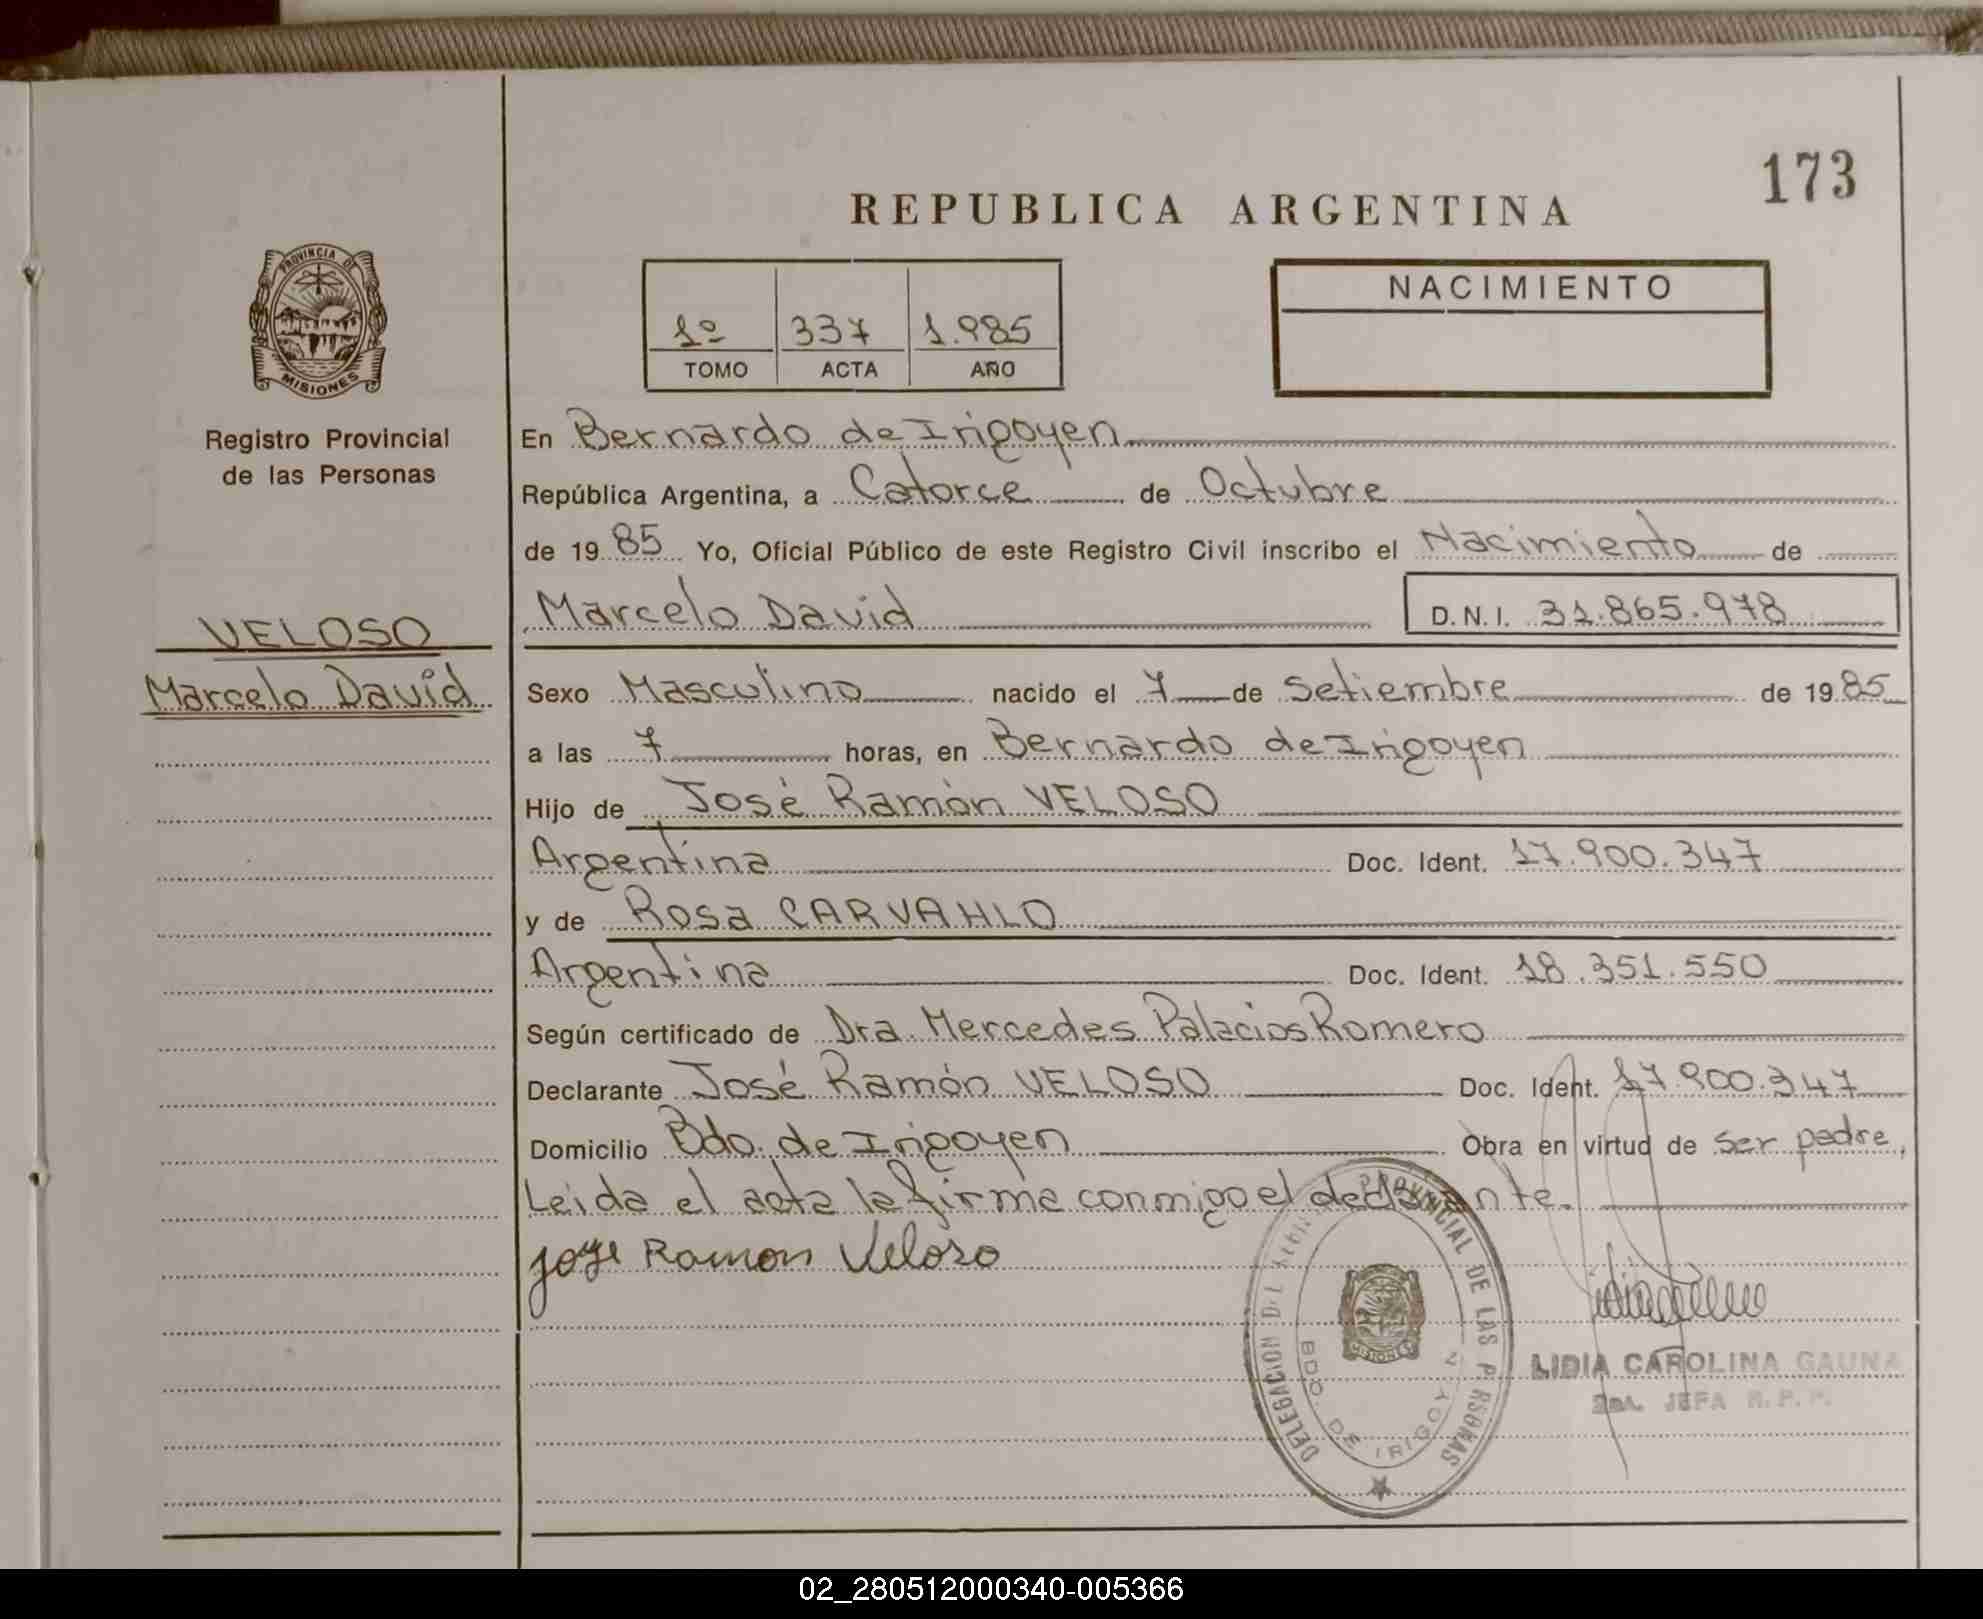 173
REPUBLICA ARGENTINA
PROVINCIA DE
MISIONES
Registro Provincial
de las Personas
1º 337 1.985
TOMO ACTA AÑO
NACIMIENTO
En Bernardo de Irigoyen
República Argentina, a Catorce de Octubre
de 19 85 Yo, Oficial Público de este Registro Civil inscribo el Nacimiento de
Marcelo David D.N.I. 31.865.978
VELOSO
Marcelo David
Sexo Masculino nacido el 7 de Setiembre de 19 85
a las 7 horas, en Bernardo de Irigoyen
Hijo de José Ramón VELOSO
Argentina Doc. Ident. 17.900.347
y de Rosa CARVAHLO
Argentina Doc. Ident. 18.351.550
Según certificado de Dra. Mercedes Palacios Romero
Declarante José Ramón VELOSO Doc. Ident. 17.900.347
Domicilio Bdo. de Irigoyen Obra en virtud de ser padre,
Leida el acta la firma conmigo el declarante.
jose Ramon Veloso
PROVINCIAL DE LAS P RSONAS
DELEGACION
MISIONES
BDO. DE IRIGOY N
LIDIA CAROLINA GAUNA
JEFA R.P.P.
02_280512000340-005366